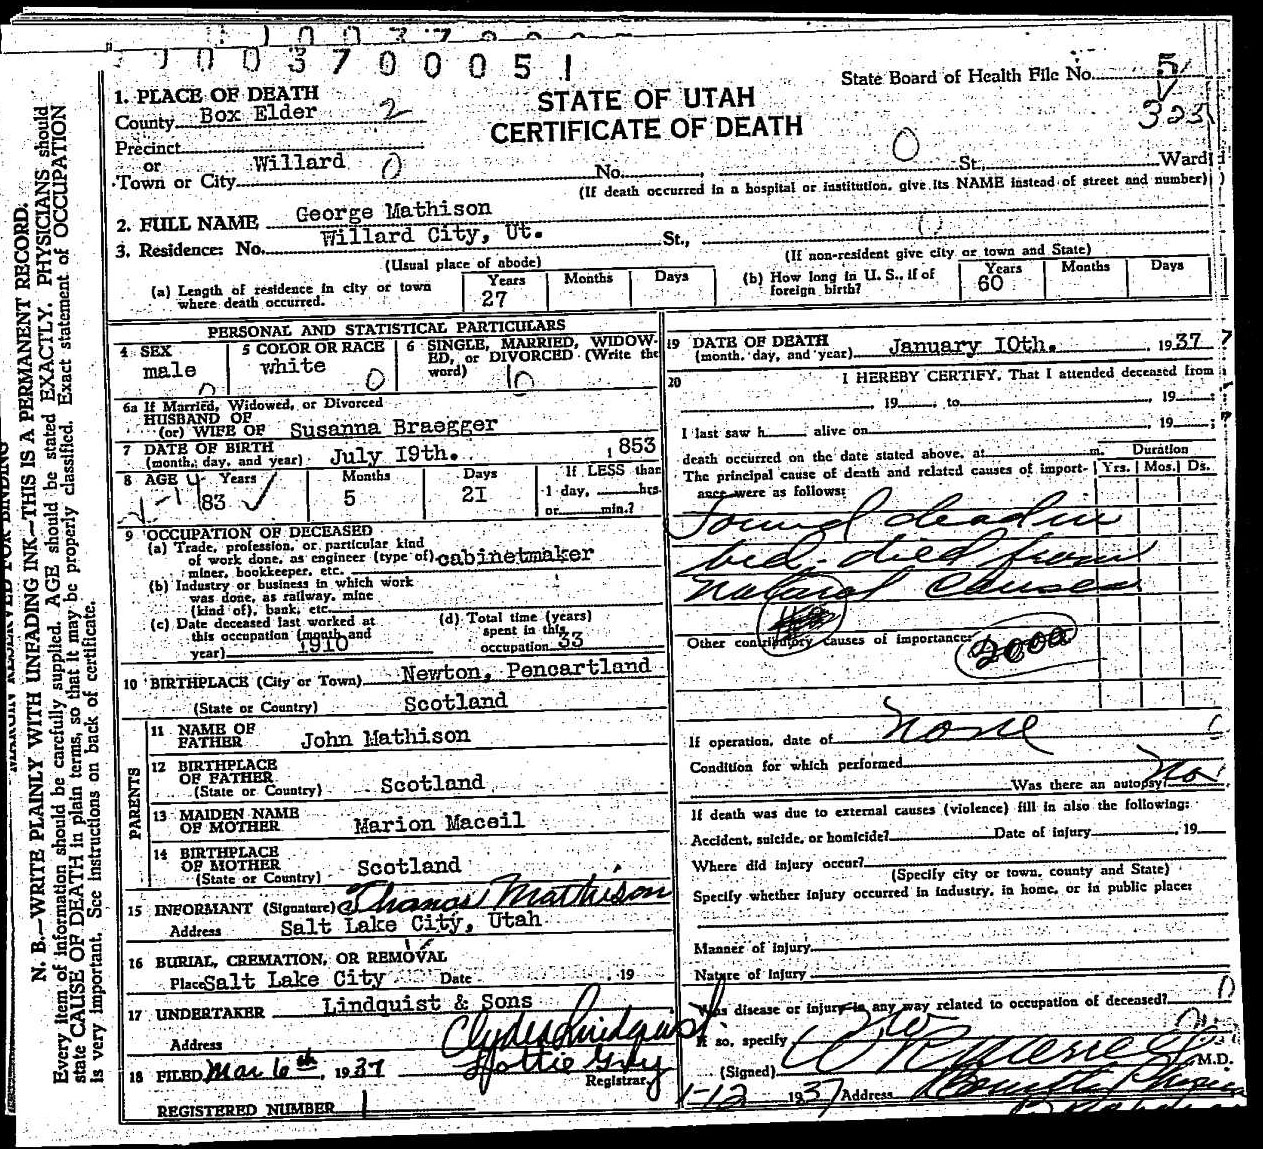 1003700051
State Board of Health File No. 5
325
STATE OF UTAH
CERTIFICATE OF DEATH
1. PLACE OF DEATH
County Box Elder 2
Precinct
or
Town or City Willard 0 No. , 0 St., Ward
(If death occurred in a hospital or institution, give its NAME instead of street and number)
2. FULL NAME George Mathison
3. Residence: No. Willard City, Ut. St., 0
(Usual place of abode) (If non-resident give city or town and State)
(a) Length of residence in city or town where death occurred. Years 27 Months Days
(b) How long in U. S., if of foreign birth? Years 60 Months Days
PERSONAL AND STATISTICAL PARTICULARS
4 SEX male
5 COLOR OR RACE white 0
6 SINGLE, MARRIED, WIDOWED, or DIVORCED (Write the word)
6a If Married, Widowed, or Divorced
HUSBAND OF
(or) WIFE OF Susanna Braegger
7 DATE OF BIRTH
(month, day, and year) July I9th. , 1853
8 AGE Years 83 Months 5 Days 2I
If LESS than
1 day, hrs.
or min.?
9 OCCUPATION OF DECEASED
(a) Trade, profession, or particular kind
of work done, as engineer (type of) cabinetmaker
miner, bookkeeper, etc.
(b) Industry or business in which work
was done, as railway, mine
(kind of), bank, etc.
(c) Date deceased last worked at
this occupation (month and
year) 1910
(d) Total time (years)
spent in this
occupation 33
10 BIRTHPLACE (City or Town) Newton, Pencartland
(State or Country) Scotland
PARENTS
11 NAME OF
FATHER John Mathison
12 BIRTHPLACE
OF FATHER
(State or Country) Scotland
13 MAIDEN NAME
OF MOTHER Marion Maceil
14 BIRTHPLACE
OF MOTHER
(State or Country) Scotland
15 INFORMANT (Signature) Thomas Mathison
Address Salt Lake City, Utah
16 BURIAL, CREMATION, OR REMOVAL
Place Salt Lake City Date , 19
17 UNDERTAKER Lindquist & Sons
Address Clyde Lindquist
18 FILED Mar 6th , 1937 Hottie Gray
Registrar
REGISTERED NUMBER 1
19 DATE OF DEATH
(month, day, and year) January I0th. , 1937
20 I HEREBY CERTIFY, That I attended deceased from
, 19 , to , 19 ;
I last saw h alive on , 19 ;
death occurred on the date stated above, at m.
The principal cause of death and related causes of importance were as follows:
Duration
Yrs. Mos. Ds.
Found dead in
bed. died from
natural causes
Other contributory causes of importance:
2000
If operation, date of None
Condition for which performed
Was there an autopsy? No
If death was due to external causes (violence) fill in also the following:
Accident, suicide, or homicide? Date of injury , 19
Where did injury occur?
(Specify city or town, county and State)
Specify whether injury occurred in industry, in home, or in public place:
Manner of injury
Nature of injury
Was disease or injury in any way related to occupation of deceased? 0
If so, specify no
(Signed) M.D.
1-12 1937 Address
N. B.—WRITE PLAINLY WITH UNFADING INK—THIS IS A PERMANENT RECORD.
Every item of information should be carefully supplied. AGE should be stated EXACTLY. PHYSICIANS should
state CAUSE OF DEATH in plain terms, so that it may be properly classified. Exact statement of OCCUPATION
is very important. See instructions on back of certificate.
MARGIN RESERVED FOR BINDING